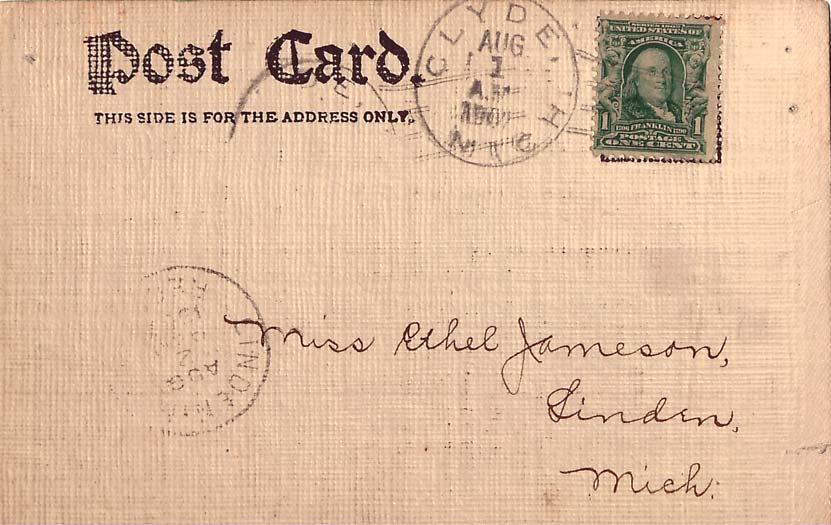 Post Card.
THIS SIDE IS FOR THE ADDRESS ONLY.
CLYDE, MICH
AUG
1
SERIES 1902
UNITED STATES OF
AMERICA
1 1706 FRANKLIN 1790 1
POSTAGE
ONE CENT
LINDEN
AUG
Miss Ethel Jameson,
Linden,
Mich.